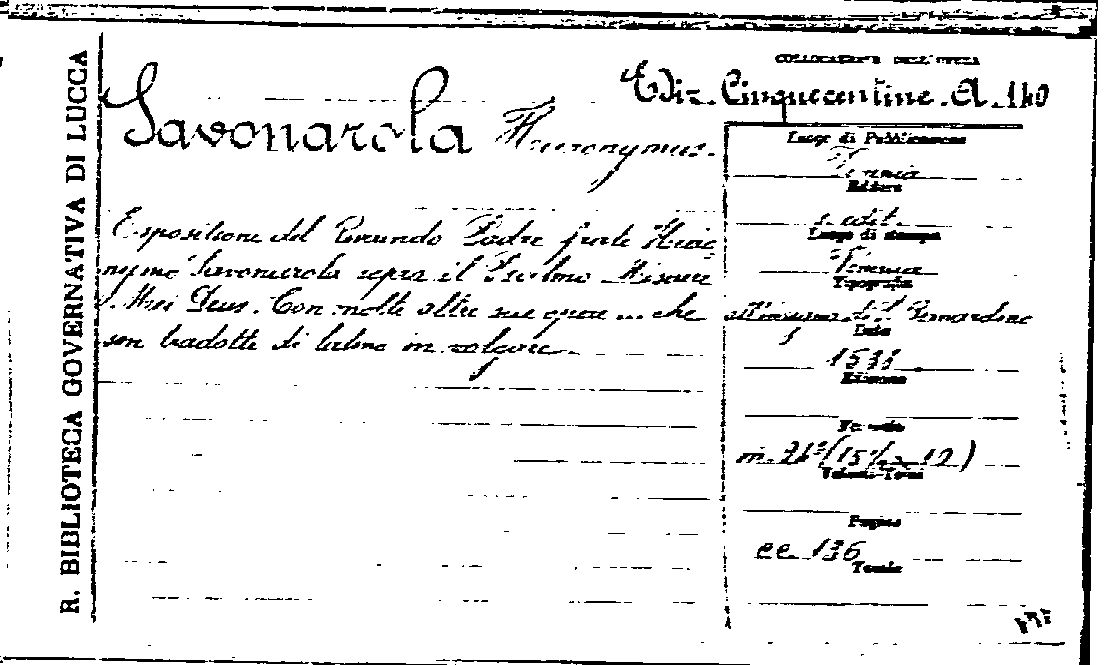 R. BIBLIOTECA GOVERNATIVA DI LUCCA
COLLOCAZIONE DELL'OPERA
Ediz. Cinquecentine. A. 140
Savonarola Hieronymus.
Espositione del Reverendo Padre frate Hiero
nymo Savonarola sopra il Psalmo Miserere
Mei Deus. Con molte altre sue opere ... che
son tradotte di latino in volgare.
Luogo di Pubblicazione
Venezia
Editore
s. edit.
Luogo di stampa
Venezia
Tipografia
all'insegna di S. Bernardino
Data
Edizione
Formato
Volumi-Tomi
Pagine
cc. 136
Tavole